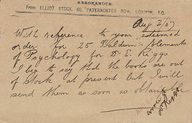 From ELLIOT STOCK, 62, PATERNOSTER ROW, LONDON, E.C.
Aug 2/97
With reference to your esteemed
order for 25 Baldwin's Elements
of Psychology for D. E. Riggs
I beg to say that the book are out
of Stock at present but I will
send them as soon as